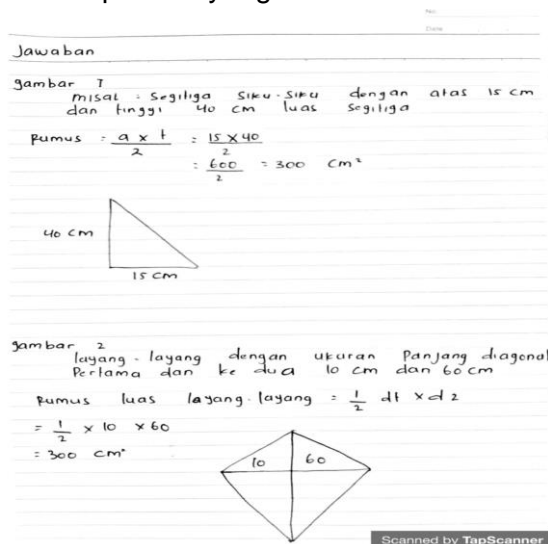 No:
Date:
Jawaban
gambar 1
misal : Segiliga siku-siku dengan atas 15 cm
dan tinggi 40 cm luas segitiga
Rumus : a x t / 2 : 15 x 40 / 2
: 600 / 2 = 300 cm²
40 cm
15 cm
gambar 2
layang-layang dengan ukuran Panjang diagonal
Pertama dan ke dua 10 cm dan 60 cm
Rumus luas layang-layang = 1/2 d1 x d2
= 1/2 x 10 x 60
= 300 cm²
10 60
Scanned by TapScanner